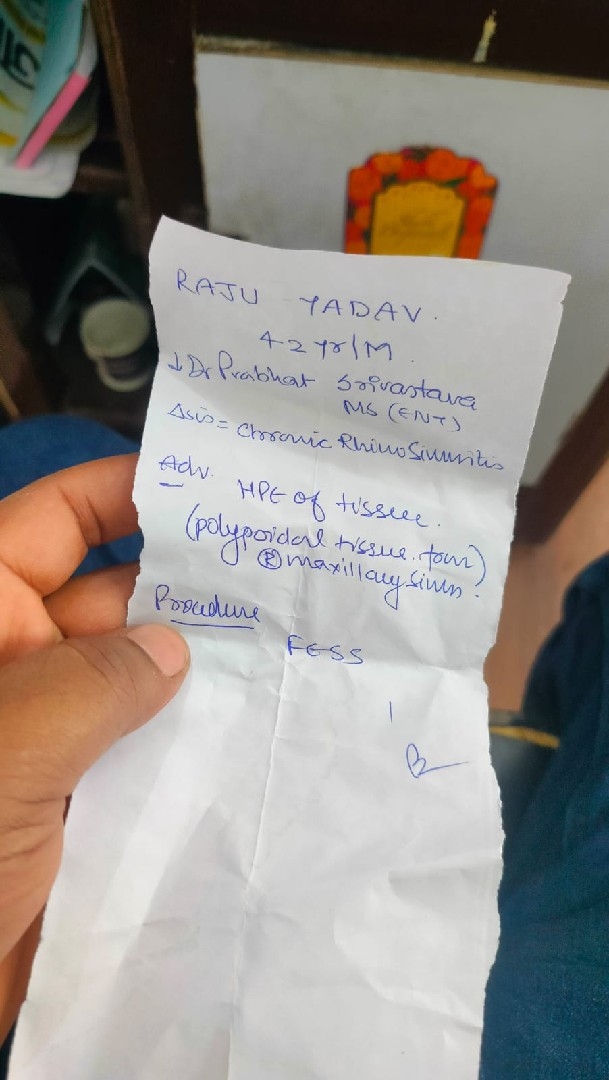 RAJU YADAV.
42 yr/M
↓ Dr Prabhat Srivastava
MS (ENT)
Δsis = Chronic Rhinosinusitis
Adv.
HPE of tissue.
(polypoidal tissue from)
Ⓡ maxillary sinus.
Procedure
FESS